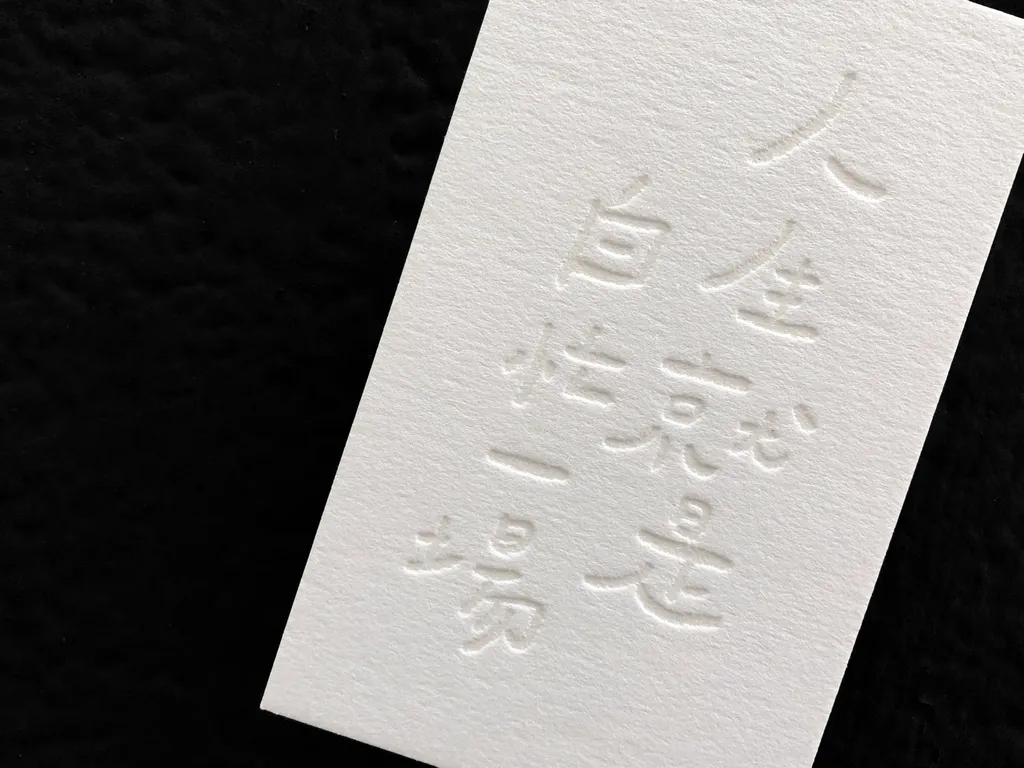 人生就是
白忙一場